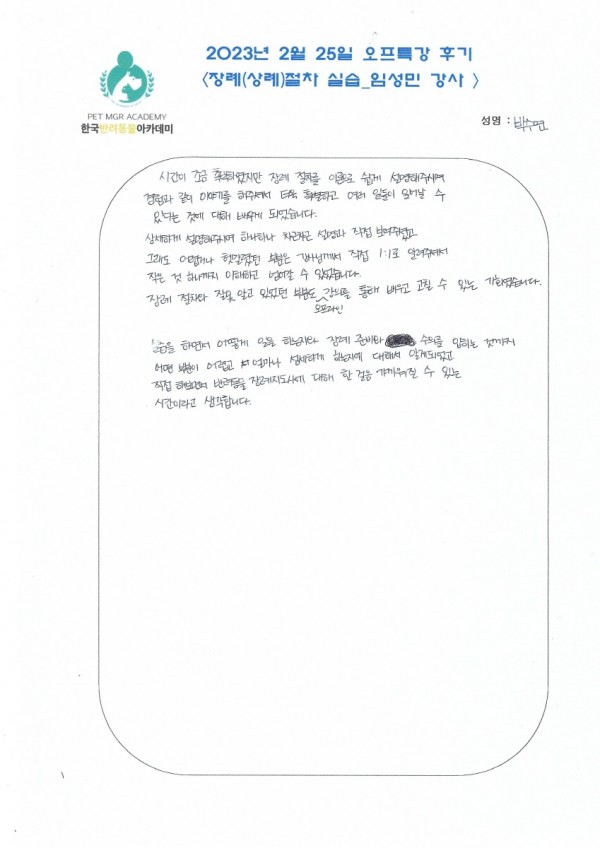 2023년 2월 25일 오프특강 후기
<장례(상례)절차 실습_임성민 강사 >
PET MGR ACADEMY
한국반려동물아카데미
성명 : 박수연
시간이 조금 촉박하였지만 장례 절차를 이론으로 쉽게 설명해주시며
경험과 같이 이야기를 해주셔서 더욱 특별하고 여러 일들이 일어날 수
있다는 것에 대해 배우게 되었습니다.
상세하게 설명해주시며 하나하나 차근차근 설명과 직접 보여주셨고
그래도 어렵거나 헷갈렸던 부분은 강사님께서 직접 1:1로 알려주셔서
작은 것 하나까지 이해하고 넘어갈 수 있었습니다.
장례 절차와 잘못 알고 있었던 부분도 강의를 통해 배우고 고칠 수 있는 기회였습니다.
오프라인
실습을 하면서 어떻게 염을 하는지와 장례 준비와 수의를 입히는 것까지
어떤 부분이 어렵고 얼마나 섬세하게 하는지에 대해서 알게되었고
직접 해보면서 반려동물장례지도사에 대해 한 걸음 가까워질 수 있는
시간이라고 생각합니다.